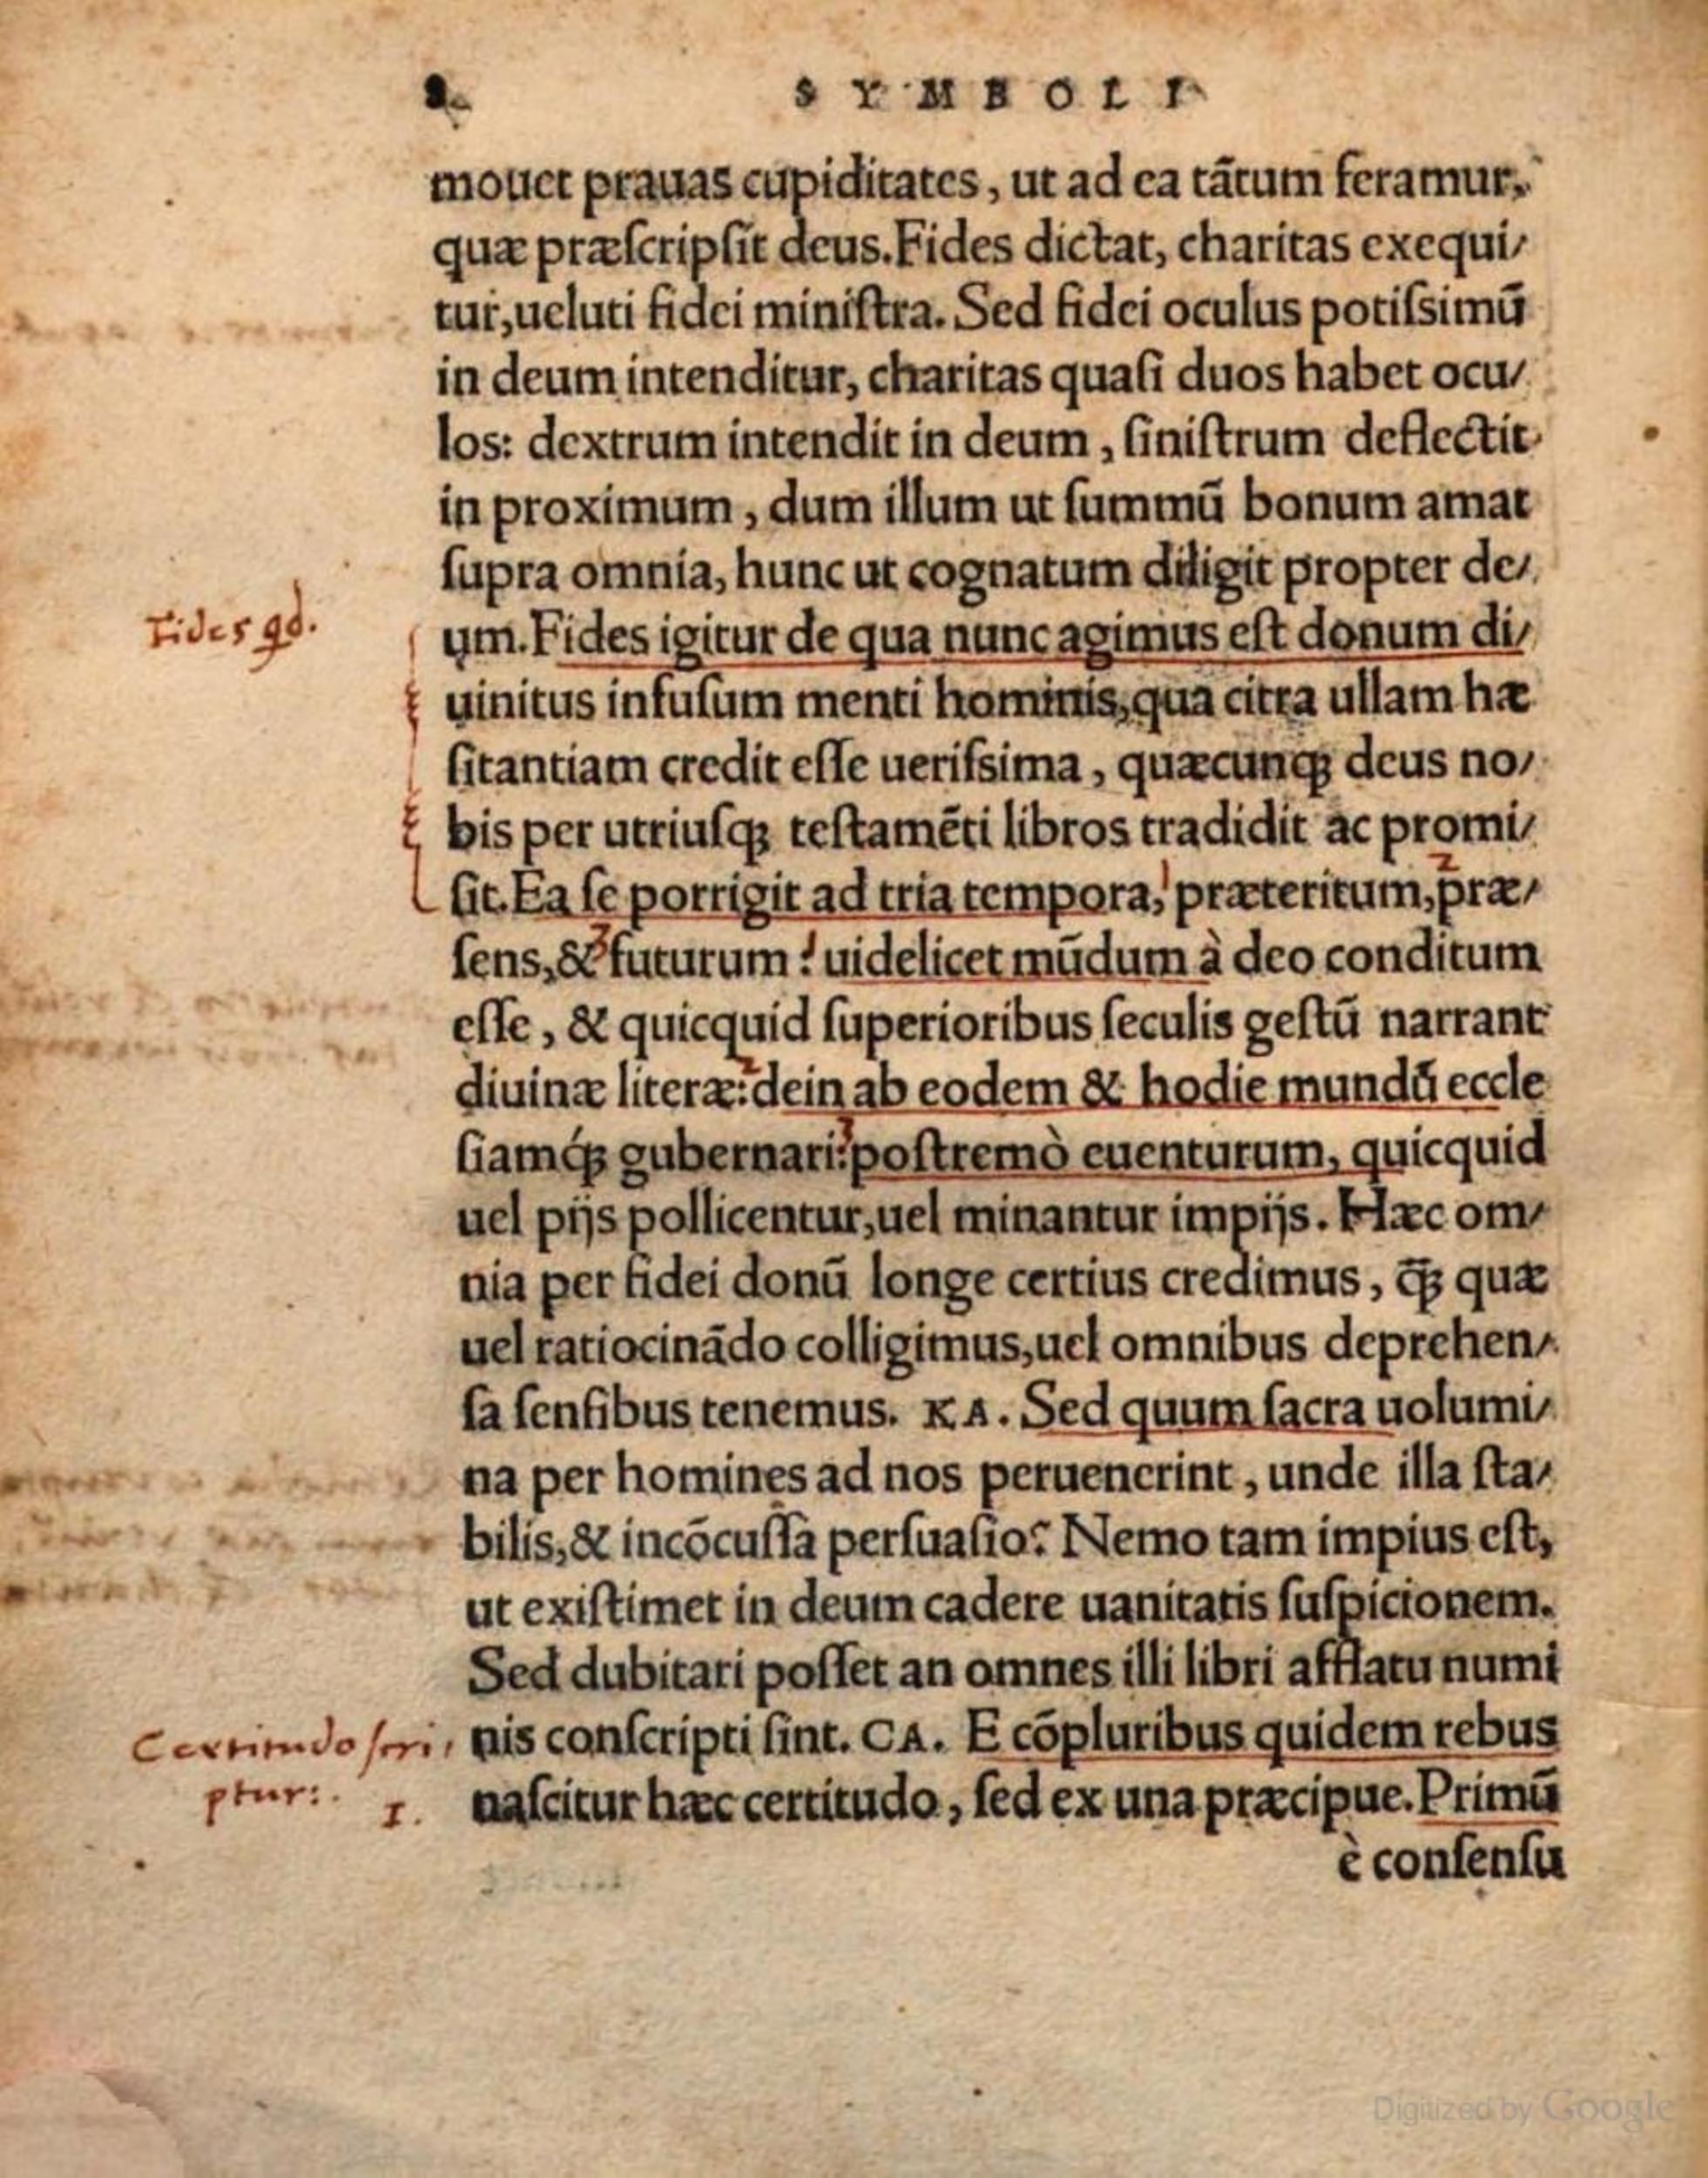 8 SYMBOLI
mouet prauas cupiditates, ut ad ea tãtum feramur,
quæ præſcripſit deus. Fides dictat, charitas exequi/
tur, ueluti fidei miniſtra. Sed fidei oculus potiſsimũ
in deum intenditur, charitas quaſi duos habet ocu/
los: dextrum intendit in deum, ſiniſtrum deflectit
in proximum, dum illum ut ſummũ bonum amat
ſupra omnia, hunc ut cognatum diligit propter de/
Fides qd.
um. Fides igitur de qua nunc agimus eſt donum di/
uinitus infuſum menti hominis, qua citra ullam hæ
ſitantiam credit eſſe ueriſsima, quæcunqꝫ deus no/
bis per utriuſqꝫ teſtamẽti libros tradidit ac promi/
ſit. Ea ſe porrigit ad tria tempora, 1 præteritum, 2 præ/
ſens, & 3 futurum: 1 uidelicet mũdum à deo conditum
eſſe, & quicquid ſuperioribus ſeculis geſtũ narrant
diuinæ literæ: 2 dein ab eodem & hodie mundũ eccle
ſiamq́ꝫ gubernari: 3 poſtremò euenturum, quicquid
uel pijs pollicentur, uel minantur impijs. Hæc om/
nia per fidei donũ longe certius credimus, q̃ꝫ quæ
uel ratiocinãdo colligimus, uel omnibus deprehen/
ſa ſenſibus tenemus. KA. Sed quum ſacra uolumi/
na per homines ad nos peruenerint, unde illa ſta/
bilis, & incõcuſſa perſuaſio? Nemo tam impius eſt,
ut exiſtimet in deum cadere uanitatis ſuſpicionem.
Sed dubitari poſſet an omnes illi libri afflatu numi
Certitudo ſcri,
nis conſcripti ſint. CA. E cõpluribus quidem rebus
ptur: . 1.
naſcitur hæc certitudo, ſed ex una præcipue. Primũ
è conſenſu
Digitized by Google